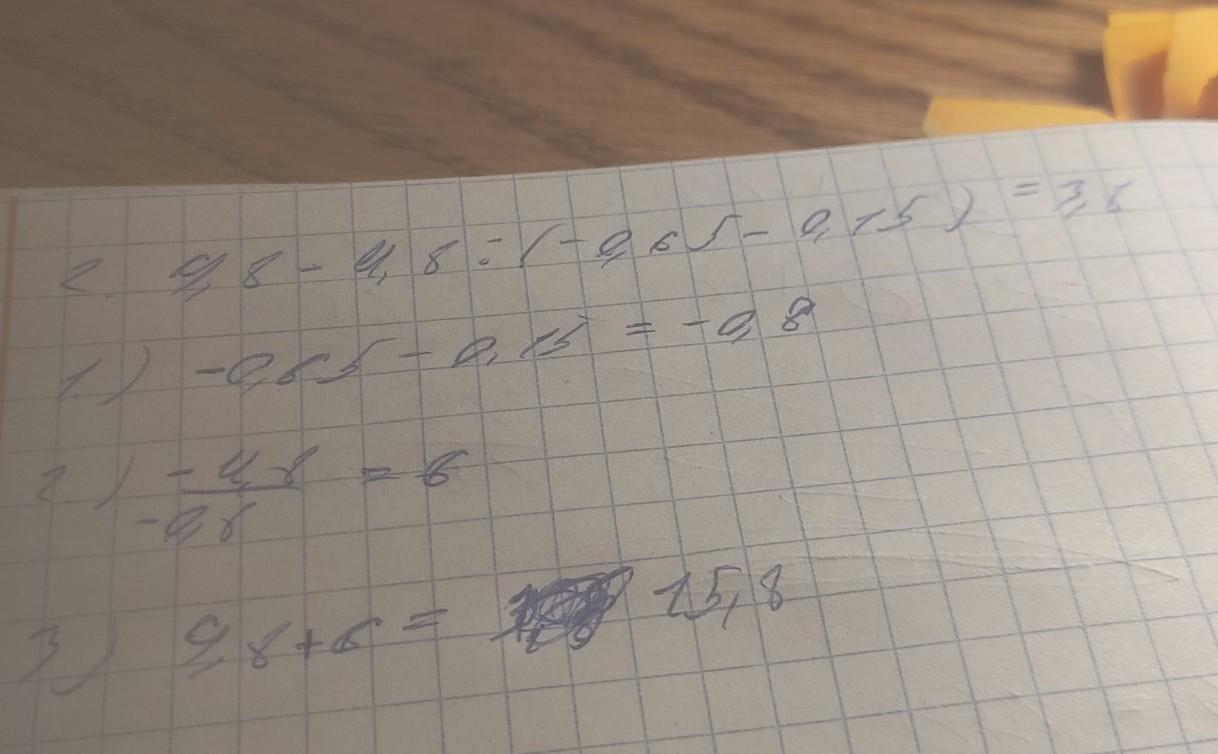 2. 9,8 - 4,8 : (-0,65 - 0,15) = 3,8
1.) -0,65 - 0,15 = -0,8
2) -4,8 / -0,8 = 6
3) 9,8 + 6 = 15,8